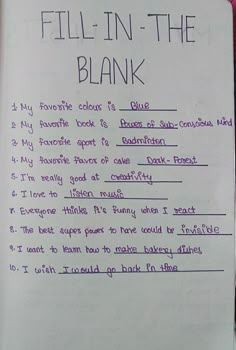 FILL-IN-THE
BLANK
1. My favorite colour is Blue
2. My favorite book is Power of Sub-Conscious Mind
3. My favorite sport is Badminton
4. My favorite flavor of cake Dark-Forest
5. I'm really good at creativity
6. I love to listen music
7. Everyone thinks it's funny when I react
8. The best super power to have would be invisible
9. I want to learn how to make bakery dishes
10. I wish I would go back in time